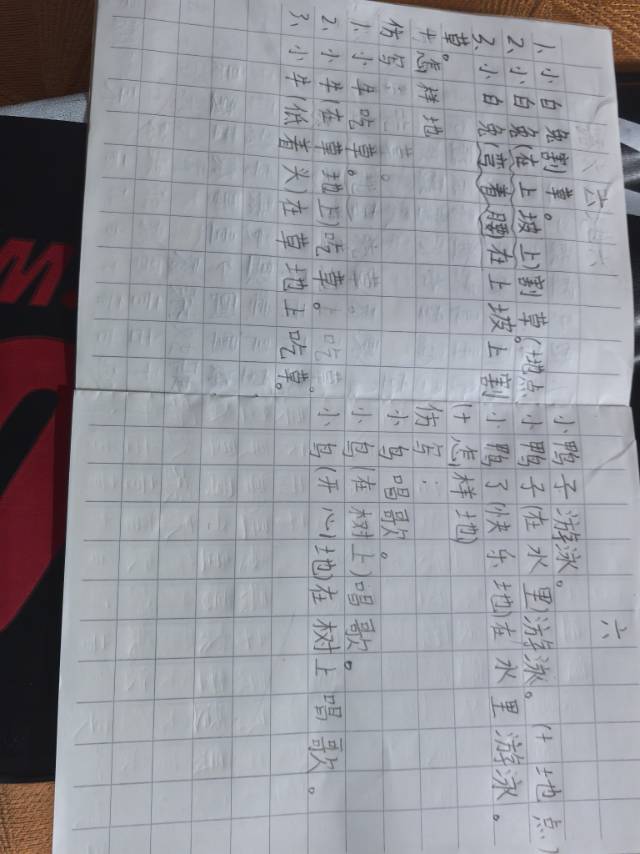 六
1、小白兔割草。
2、小白兔(在上坡上)割草。(地点
3、小白兔(弯着腰在上坡上割
草。
+怎样地
仿写:
1、小牛吃草。
2、小牛(在草地上)吃草。
3、小牛低着头)在草地上吃草。
六
小鸭子游泳。
小鸭子(在水里)游泳。(+地点)
小鸭子(快乐地在水里游泳。
(+怎样地)
仿写:
小鸟唱歌。
小鸟(在树上)唱歌。
小鸟(开心地)在树上唱歌。